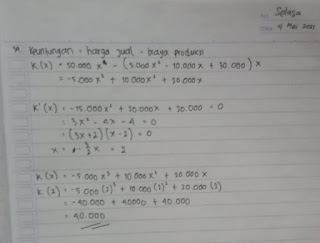 Selasa
4 Mei 2021
Keuntungan = harga jual - biaya produksi
K(x) = 50.000 x - (5.000x² - 10.000x + 30.000) x
= -5.000x³ + 10.000x² + 20.000x
K'(x) = -15.000x² + 20.000x + 20.000 = 0
= 3x² - 4x - 4 = 0
= (3x+2)(x-2) = 0
x = -2/3 x = 2
K(x) = -5.000x³ + 10.000x² + 20.000x
K(2) = -5.000(2)³ + 10.000(2)² + 20.000(2)
= -40.000 + 40000 + 40.000
= 40.000